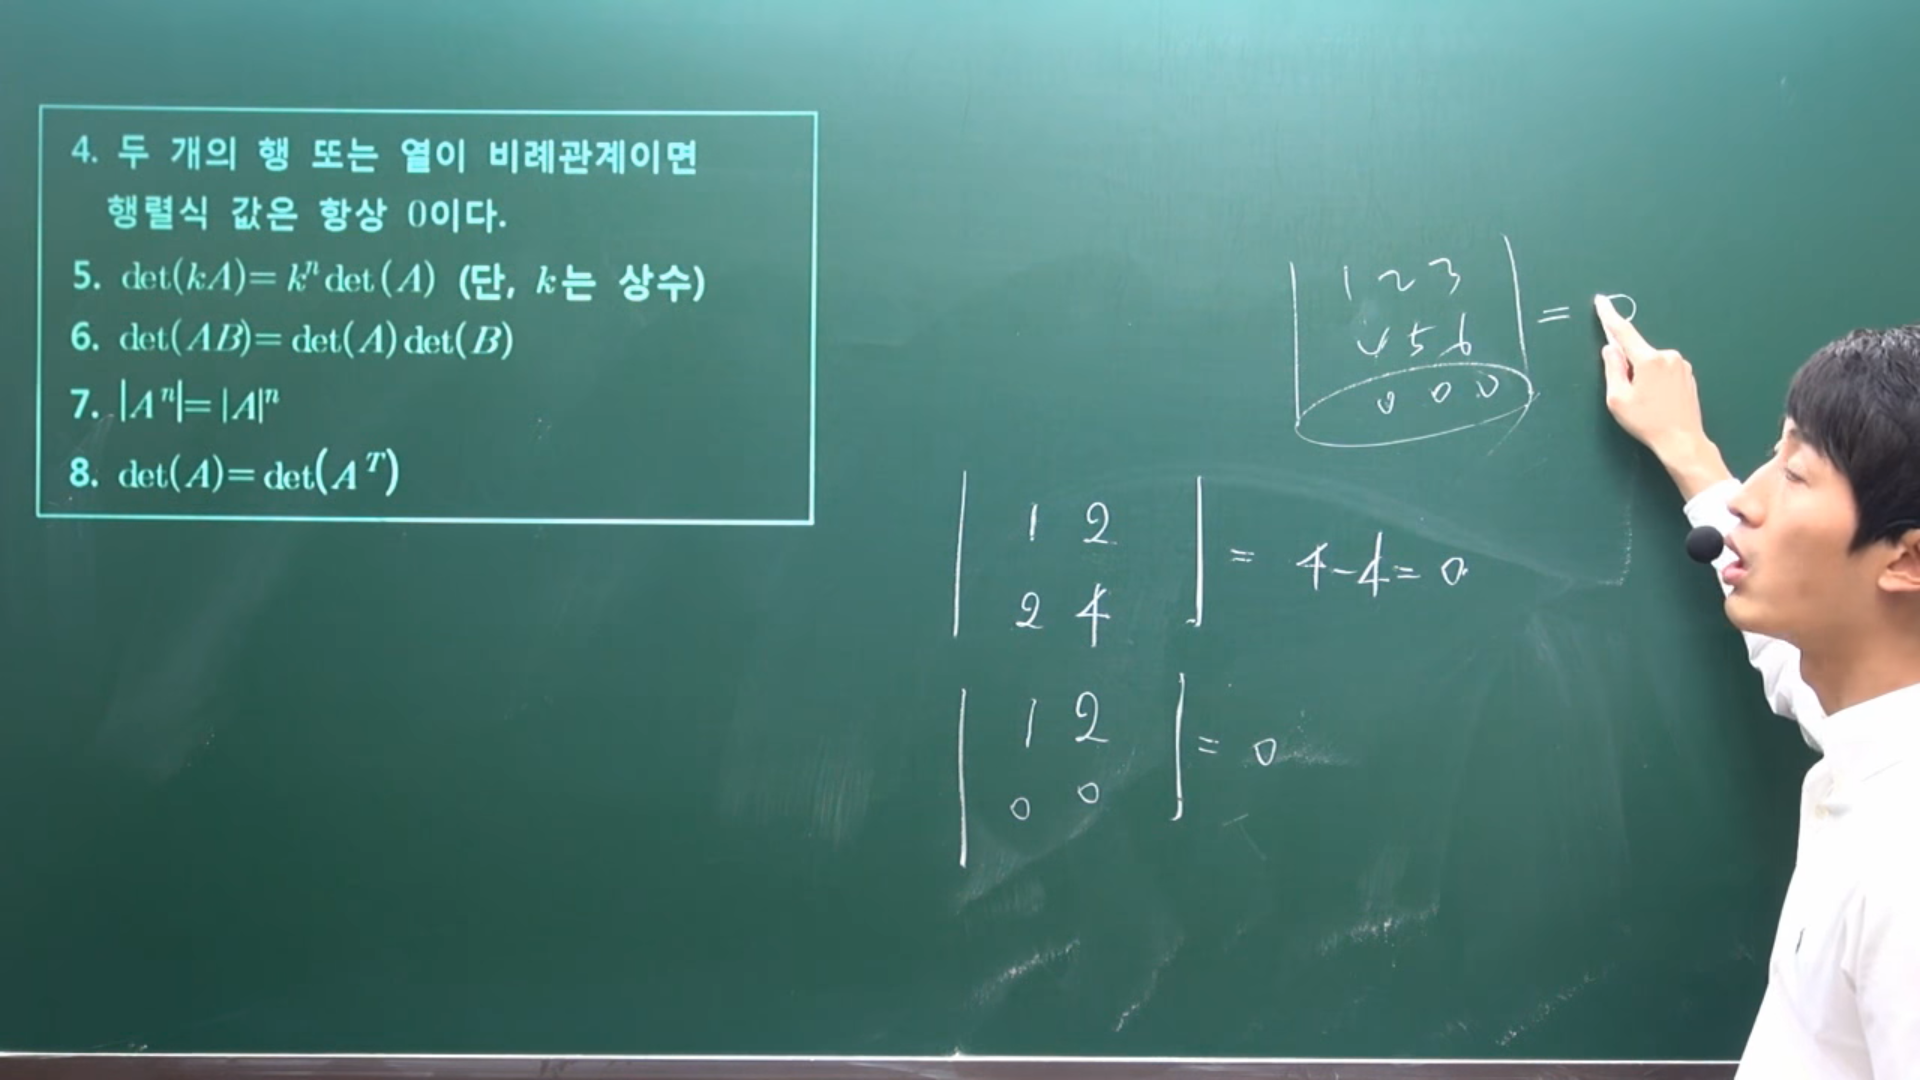 4. 두 개의 행 또는 열이 비례관계이면
행렬식 값은 항상 0이다.
5. det(kA)= kⁿ det (A) (단, k는 상수)
6. det(AB)= det(A) det(B)
7. |Aⁿ|= |A|ⁿ
8. det(A)= det(Aᵀ)
| 1 2 3 |
| 4 5 6 | = 0
| 0 0 0 |
| 1 2 | = 4-4= 0
| 2 4 |
| 1 2 | = 0
| 0 0 |